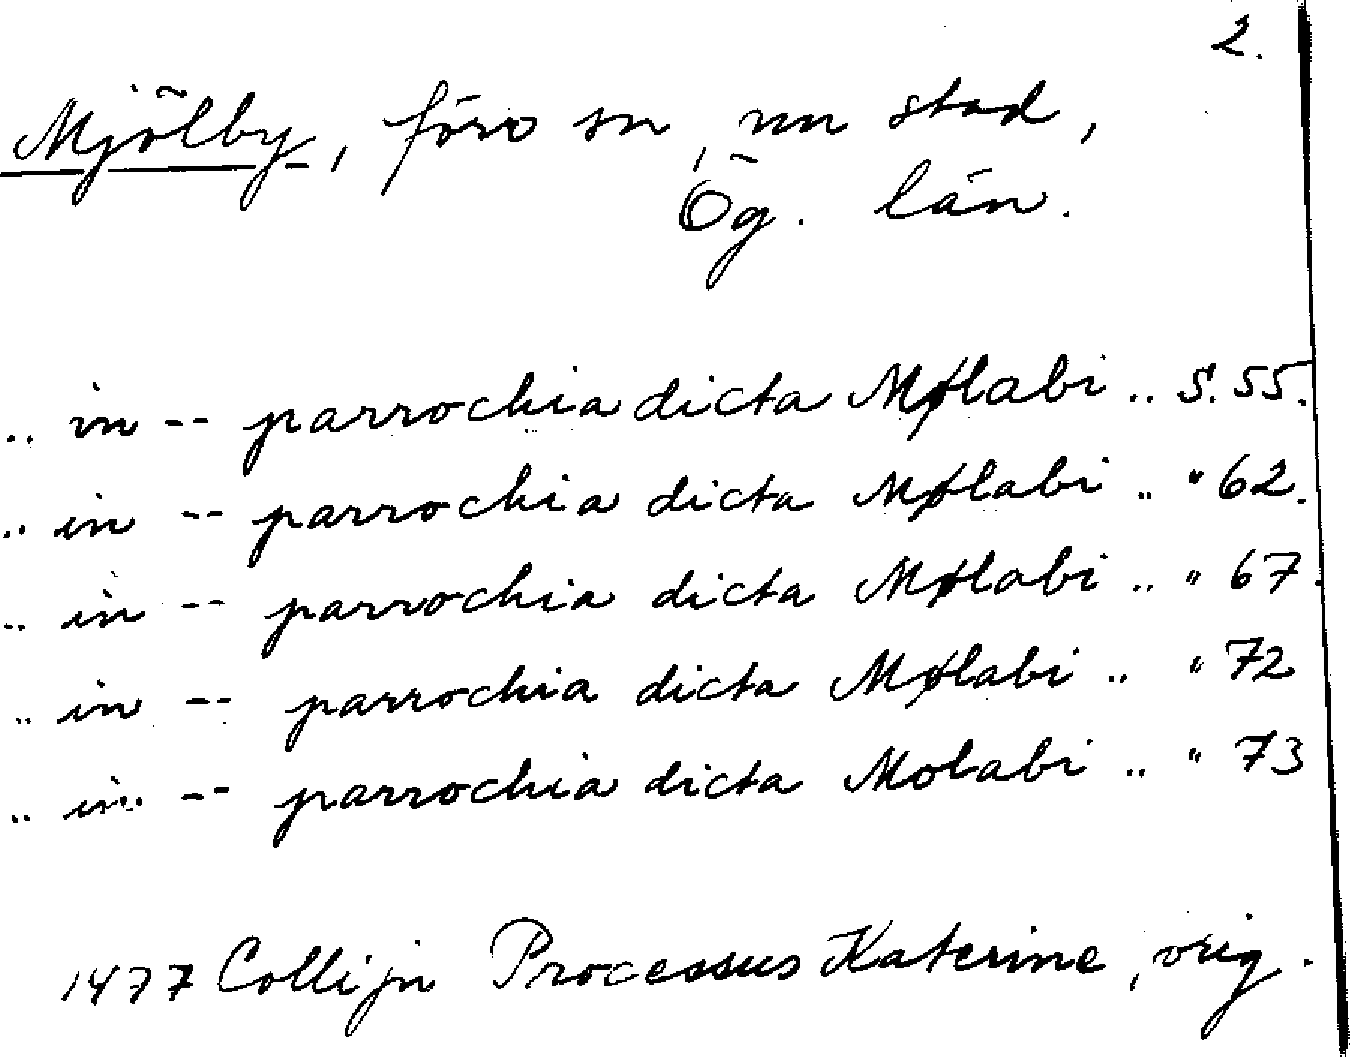 2.
Mjölby, förr sn, nu stad,
Ög. län.
.. in -- parrochia dicta Mølabi .. S. 55.
.. in -- parrochia dicta Mølabi .. " 62.
.. in -- parrochia dicta Mølabi .. " 67.
.. in -- parrochia dicta Mølabi .. " 72
.. in -- parrochia dicta Molabi .. " 73
1477 Collijn Processus Katerine, orig.